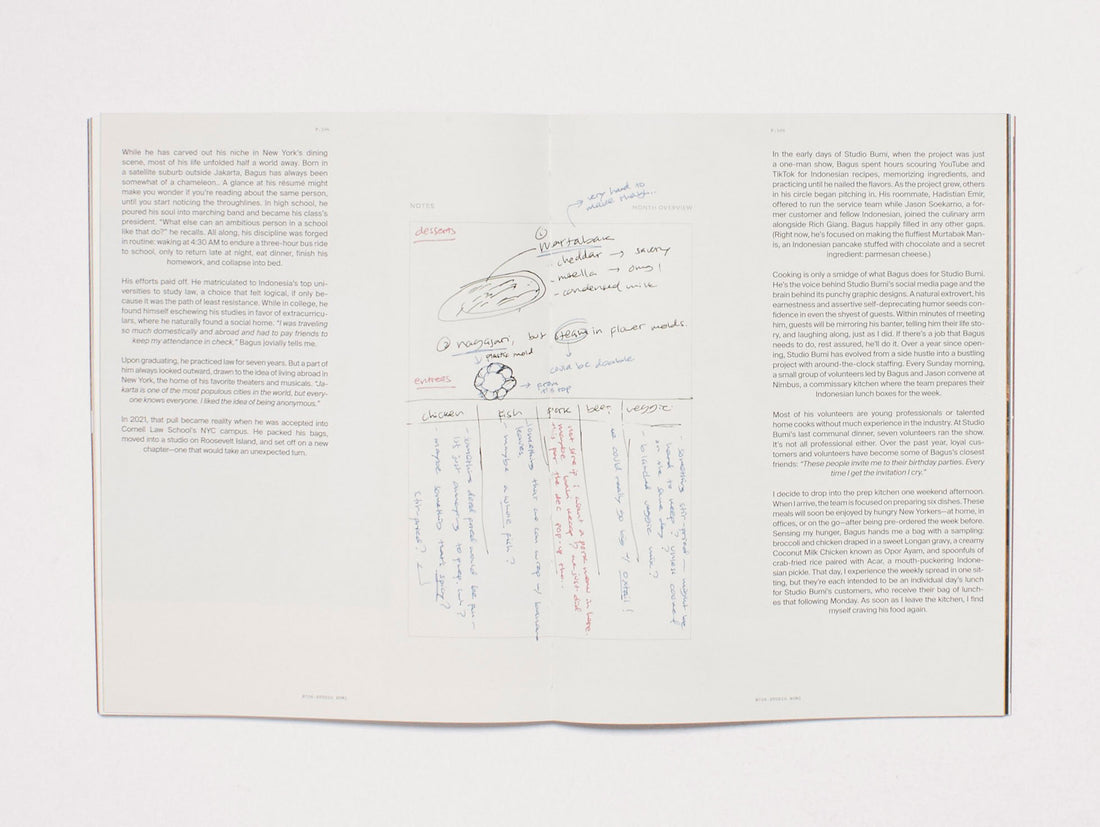 P.104
While he has carved out his niche in New York's dining
scene, most of his life unfolded half a world away. Born in
a satellite suburb outside Jakarta, Bagus has always been
somewhat of a chameleon. A glance at his résumé might
make you wonder if you're reading about the same person,
until you start noticing the throughlines. In high school, he
poured his soul into marching band and became his class's
president. "What else can an ambitious person in a school
like that do?" he recalls. All along, his discipline was forged
in routine: waking at 4:30 AM to endure a three-hour bus ride
to school, only to return late at night, eat dinner, finish his
homework, and collapse into bed.
His efforts paid off. He matriculated to Indonesia's top uni-
versities to study law, a choice that felt logical, if only be-
cause it was the path of least resistance. While in college, he
found himself eschewing his studies in favor of extracurricu-
lars, where he naturally found a social home. "I was traveling
so much domestically and abroad and had to pay friends to
keep my attendance in check," Bagus jovially tells me.
Upon graduating, he practiced law for seven years. But a part of
him always looked outward, drawn to the idea of living abroad in
New York, the home of his favorite theaters and musicals. "Ja-
karta is one of the most populous cities in the world, but every-
one knows everyone. I liked the idea of being anonymous."
In 2021, that pull became reality when he was accepted into
Cornell Law School's NYC campus. He packed his bags,
moved into a studio on Roosevelt Island, and set off on a new
chapter—one that would take an unexpected turn.
NOTES
MONTH OVERVIEW
very hard to
make tho
desserts
①
Martabak
- cheddar → savory
- nutella → omg!
- condensed milk
② nagasari, but steam in flower molds.
plastic mold
could be doable
entrees
from
the top
chicken
fish
pork
beef
veggie
- something deep fried would be fun –
it's just annoying to prep tho?
- maybe something that's spicy?
(stir-fried?)
something that we can wrap w/ banana
leaves
- maybe a whole fish?
not sure if i want a pork menu in here
maybe babi kecap? we just did
this for the dec pop-up tho..
we could really go big w/ oxtail!
- something stir-fried – might be
hard to keep? unless cooked
on the same day?
- blanched veggie mix?
P.105
In the early days of Studio Bumi, when the project was just
a one-man show, Bagus spent hours scouring YouTube and
TikTok for Indonesian recipes, memorizing ingredients, and
practicing until he nailed the flavors. As the project grew, others
in his circle began pitching in. His roommate, Hadistian Emir,
offered to run the service team while Jason Soekarno, a for-
mer customer and fellow Indonesian, joined the culinary arm
alongside Rich Glang. Bagus happily filled in any other gaps.
(Right now, he's focused on making the fluffiest Murtabak Man-
is, an Indonesian pancake stuffed with chocolate and a secret
ingredient: parmesan cheese.)
Cooking is only a smidge of what Bagus does for Studio Bumi.
He's the voice behind Studio Bumi's social media page and the
brain behind its punchy graphic designs. A natural extrovert, his
earnestness and assertive self-deprecating humor seeds con-
fidence in even the shyest of guests. Within minutes of meeting
him, guests will be mirroring his banter, telling him their life sto-
ry, and laughing along, just as I did. If there's a job that Bagus
needs to do, rest assured, he'll do it. Over a year since open-
ing, Studio Bumi has evolved from a side hustle into a bustling
project with around-the-clock staffing. Every Sunday morning,
a small group of volunteers led by Bagus and Jason convene at
Nimbus, a commissary kitchen where the team prepares their
Indonesian lunch boxes for the week.
Most of his volunteers are young professionals or talented
home cooks without much experience in the industry. At Studio
Bumi's last communal dinner, seven volunteers ran the show.
It's not all professional either. Over the past year, loyal cus-
tomers and volunteers have become some of Bagus's closest
friends: "These people invite me to their birthday parties. Every
time I get the invitation I cry."
I decide to drop into the prep kitchen one weekend afternoon.
When I arrive, the team is focused on preparing six dishes. These
meals will soon be enjoyed by hungry New Yorkers—at home, in
offices, or on the go—after being pre-ordered the week before.
Sensing my hunger, Bagus hands me a bag with a sampling:
broccoli and chicken draped in a sweet Longan gravy, a creamy
Coconut Milk Chicken known as Opor Ayam, and spoonfuls of
crab-fried rice paired with Acar, a mouth-puckering Indone-
sian pickle. That day, I experience the weekly spread in one sit-
ting, but they're each intended to be an individual day's lunch
for Studio Bumi's customers, who receive their bag of lunch-
es that following Monday. As soon as I leave the kitchen, I find
myself craving his food again.
STUDIO BUMI
STUDIO BUMI